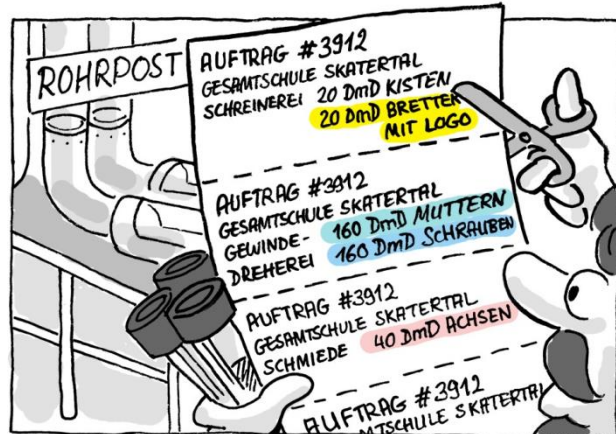 ROHRPOST
AUFTRAG #3912
GESAMTSCHULE SKATERTAL
SCHREINEREI 20 DmD KISTEN
20 DmD BRETTER
MIT LOGO
AUFTRAG #3912
GESAMTSCHULE SKATERTAL
GEWINDE- 160 DmD MUTTERN
DREHEREI 160 DmD SCHRAUBEN
AUFTRAG #3912
GESAMTSCHULE SKATERTAL
SCHMIEDE 40 DmD ACHSEN
AUFTRAG #3912
MTSCHULE SKATERTA